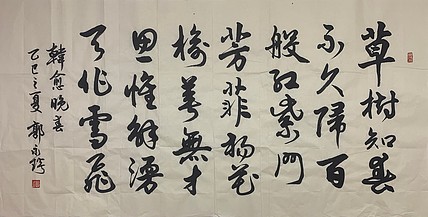 草樹知春
不久歸百
般红紫鬥
芳菲杨花
榆荚無才
思惟解漫
天作雪飛
韓愈晚春
乙巳之夏 郭永